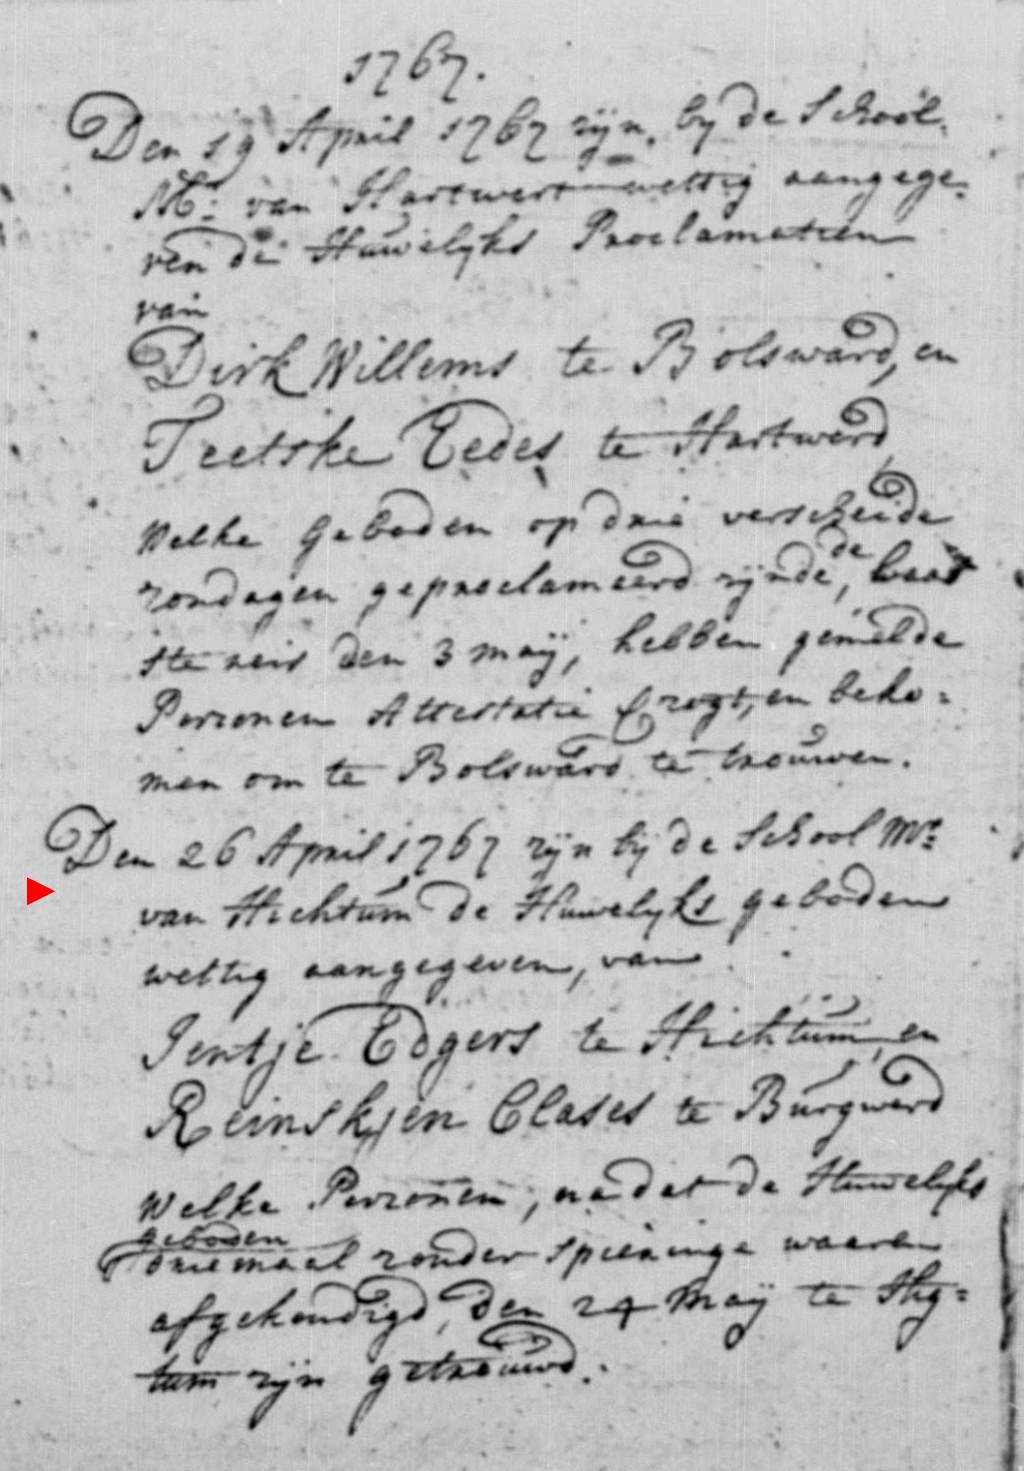 1767.
Den 19 April 1767 zijn, by de School
Mr: van Hartwert wettig aangege-
ven de Huwelyks Proclamatien
van
Dirk Willems te Bolsward, en
Teetske Eedes te Hartwerd
Welke Geboden op drie verscheide
zondagen geproclameerd zijnde, de laat
ste reis den 3 maÿ, hebben gemelde
Perzonen Attestatie verzogt, en beko=
men om te Bolsward te trouwen.
Den 26 April 1767 zijn bij de School Mr:
van Hichtum de Huwelyks geboden
wettig aangegeven, van
Jentje Edgers te Hichtum, en
Reinskjen Clases te Burgwerd
Welke Perzonen, na dat de Huwelyks
geboden
driemaal zonder spieringe waaren
afgekondigd, den 24 Maÿ te Hig=
tum zijn getrouwd.